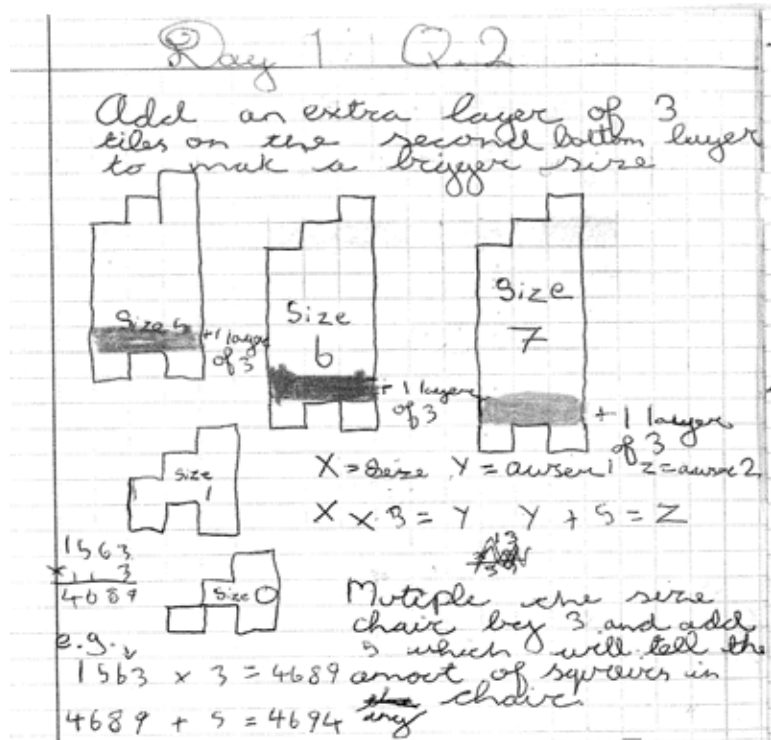 Day 1 Q.2
Add an extra layer of 3
tiles on the second bottom layer
to mak a bigger size
Size 5
+1 layer
of 3
Size
6
+ 1 layere
of 3
Size
7
+ 1 layer
of 3
Size
1
X = Seze Y = awser 1 Z = awser 2
X x 3 = Y Y + 5 = Z
1563
x 3
4689
Size 0
Muteple the size
chair by 3 and add
5 which will tell the
amoot of sqrures in
any chair
e.g.
1563 x 3 = 4689
4689 + 5 = 4694